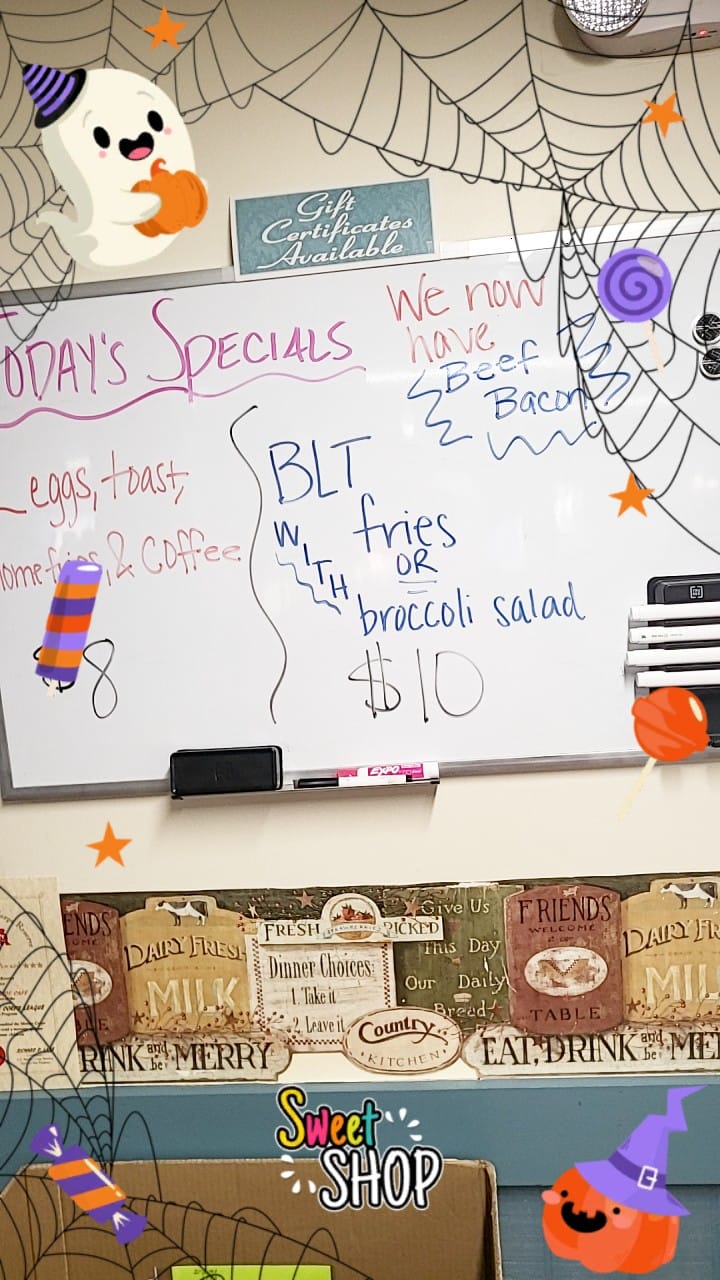 Gift
Certificates
Available
TODAY'S SPECIALS
We now
have
Beef
Bacon
eggs, toast,
homefries, & coffee
$8
BLT
WITH
fries
OR
broccoli salad
$10
EXPO
ENDS
OME
DAIRY FRESH
MILK
FRESH STRAWBERRIES PICKED
Dinner Choices:
1. Take it
2. Leave it
Give Us
This Day
Our Daily
Bread
Country
KITCHEN
FRIENDS
WELCOME
TABLE
DAIRY FR
MIL
RINK and be MERRY
EAT, DRINK and be ME
Sweet
SHOP